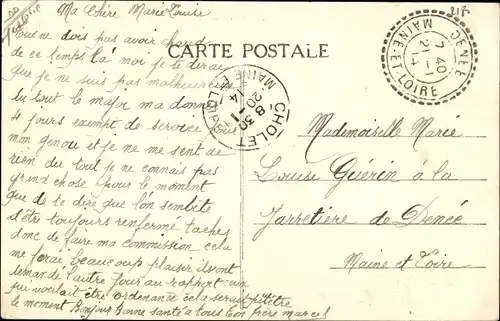 Ma Chère Marie Louise
Tu ne dois pas avoir chaud
de ce temps là moi je te dirai
que je ne suis pas malheureux
du tout le major ma donné
4 jours exempt de service
mon genou et je ne me sent de
rien du tout je ne connais pas
grand chose pour le moment
que de te dire que l'on s'embête
d'être toujours renfermé taches
donc de faire ma commission cela
me ferai beaucoup plaisir ils ont
demandé l'autre jour au rapport un
qui voulait être ordonnance cela serait
le moment Bonjour Bonne santé a tous ton frère marcel
CARTE POSTALE
CHOLET
8 30
20 -1
14
MAINE ET LOIRE
DENÉE
7 40
21 -1
14
MAINE-ET-LOIRE
218
Mademoiselle Marie
Louise Guérin à la
Jarretière de Denée
Maine et Loire